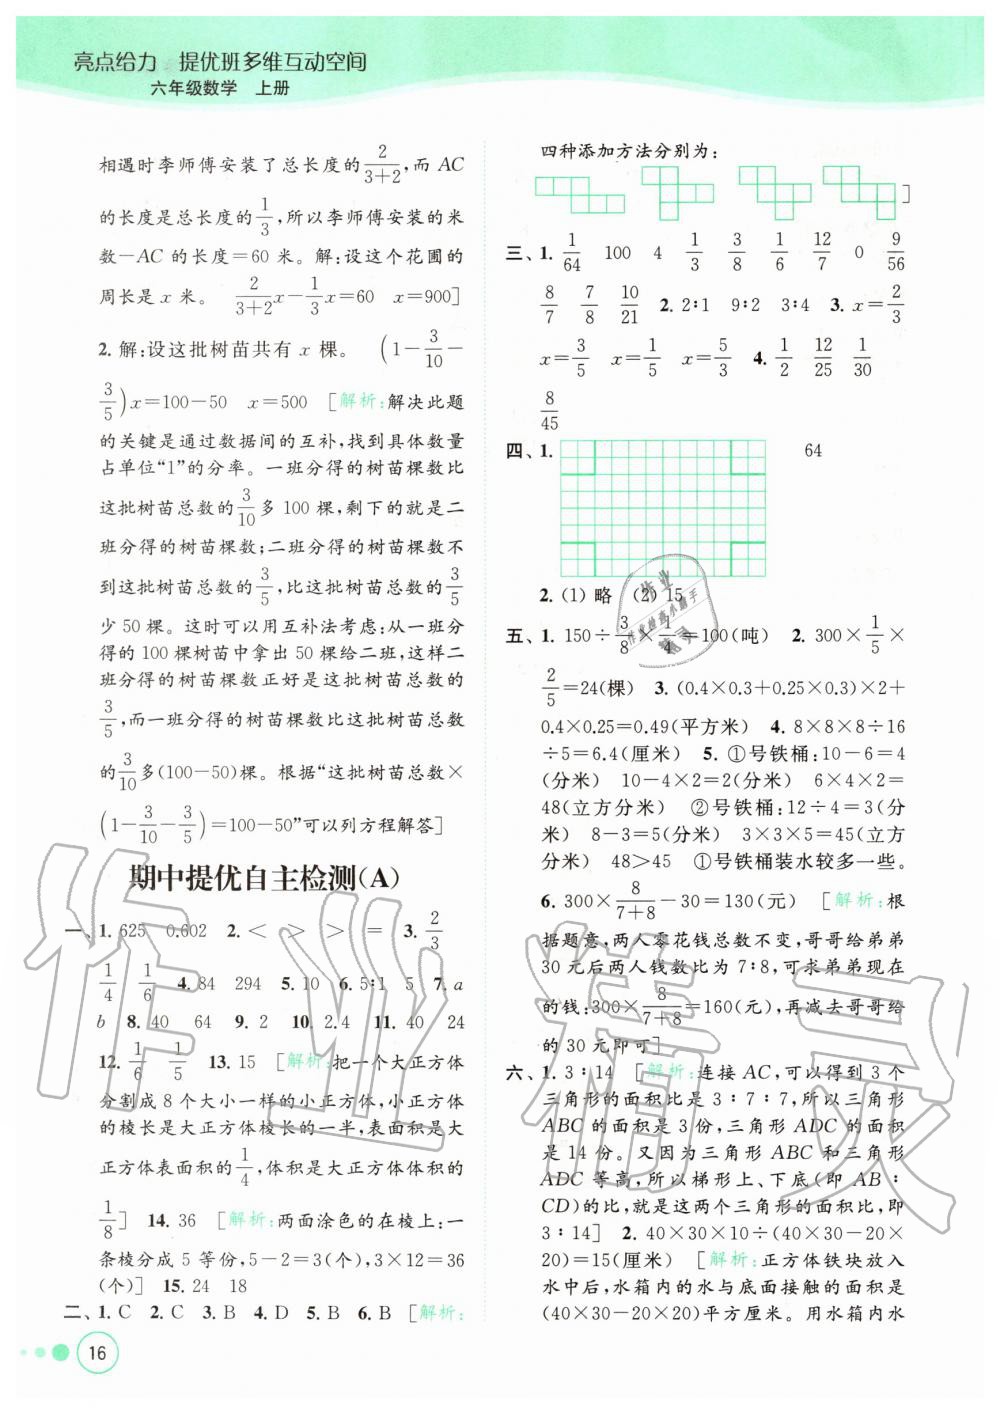 亮点给力 提优班多维互动空间
六年级数学 上册
相遇时李师傅安装了总长度的2/(3+2),而 AC
的长度是总长度的1/3,所以李师傅安装的米
数−AC 的长度=60 米。解:设这个花圃的
周长是 x 米。 2/(3+2)x−1/3x=60 x=900]
2. 解:设这批树苗共有 x 棵。 (1−3/10−
3/5)x=100−50 x=500 [解析:解决此题
的关键是通过数据间的互补,找到具体数量
占单位“1”的分率。一班分得的树苗棵数比
这批树苗总数的3/10多 100 棵,剩下的就是二
班分得的树苗棵数;二班分得的树苗棵数不
到这批树苗总数的3/5,比这批树苗总数的3/5
少 50 棵。这时可以用互补法考虑:从一班分
得的 100 棵树苗中拿出 50 棵给二班,这样二
班分得的树苗棵数正好是这批树苗总数的
3/5,而一班分得的树苗棵数比这批树苗总数
的3/10多(100−50)棵。根据“这批树苗总数×
(1−3/10−3/5)=100−50”可以列方程解答]
期中提优自主检测(A)
一、1. 625 0.602 2. < > > = 3. 2/3
1/4 1/6 4. 84 294 5. 10 6. 5∶1 5 7. a
b 8. 40 64 9. 2 10. 2.4 11. 40 24
12. 1/6 1/5 13. 15 [解析:把一个大正方体
分割成 8 个大小一样的小正方体,小正方体
的棱长是大正方体棱长的一半,表面积是大
正方体表面积的1/4,体积是大正方体体积的
1/8] 14. 36 [解析:两面涂色的在棱上:一
条棱分成 5 等份,5−2=3(个),3×12=36
(个)] 15. 24 18
二、1. C 2. C 3. B 4. D 5. B 6. B [解析:
16
四种添加方法分别为:
]
三、1. 1/64 100 4 1/3 3/8 1/6 12/7 0 9/56
8/7 7/8 10/21 2. 2∶1 9∶2 3∶4 3. x=2/3
x=3/5 x=1/5 x=5/3 4. 1/2 12/25 1/30
8/45
四、1. 64
2. (1) 略 (2) 15
五、1. 150÷3/8×1/4=100(吨) 2. 300×1/5×
2/5=24(棵) 3. (0.4×0.3+0.25×0.3)×2+
0.4×0.25=0.49(平方米) 4. 8×8×8÷16
÷5=6.4(厘米) 5. ①号铁桶:10−6=4
(分米) 10−4×2=2(分米) 6×4×2=
48(立方分米) ②号铁桶:12÷4=3(分
米) 8−3=5(分米) 3×3×5=45(立方
分米) 48>45 ①号铁桶装水较多一些。
6. 300×8/(7+8)−30=130(元) [解析:根
据题意,两人零花钱总数不变,哥哥给弟弟
30 元后两人钱数比为 7∶8,可求弟弟现在
的钱:300×8/(7+8)=160(元),再减去哥哥给
的 30 元即可]
六、1. 3∶14 [解析:连接 AC,可以得到 3 个
三角形的面积比是 3∶7∶7,所以三角形
ABC 的面积是 3 份,三角形 ADC 的面积
是 14 份。又因为三角形 ABC 和三角形
ADC 等高,所以梯形上、下底(即 AB∶
CD)的比,就是这两个三角形的面积比,即
3∶14] 2. 40×30×10÷(40×30−20×
20)=15(厘米) [解析:正方体铁块放入
水中后,水箱内的水与底面接触的面积是
(40×30−20×20)平方厘米。用水箱内水
作业精灵